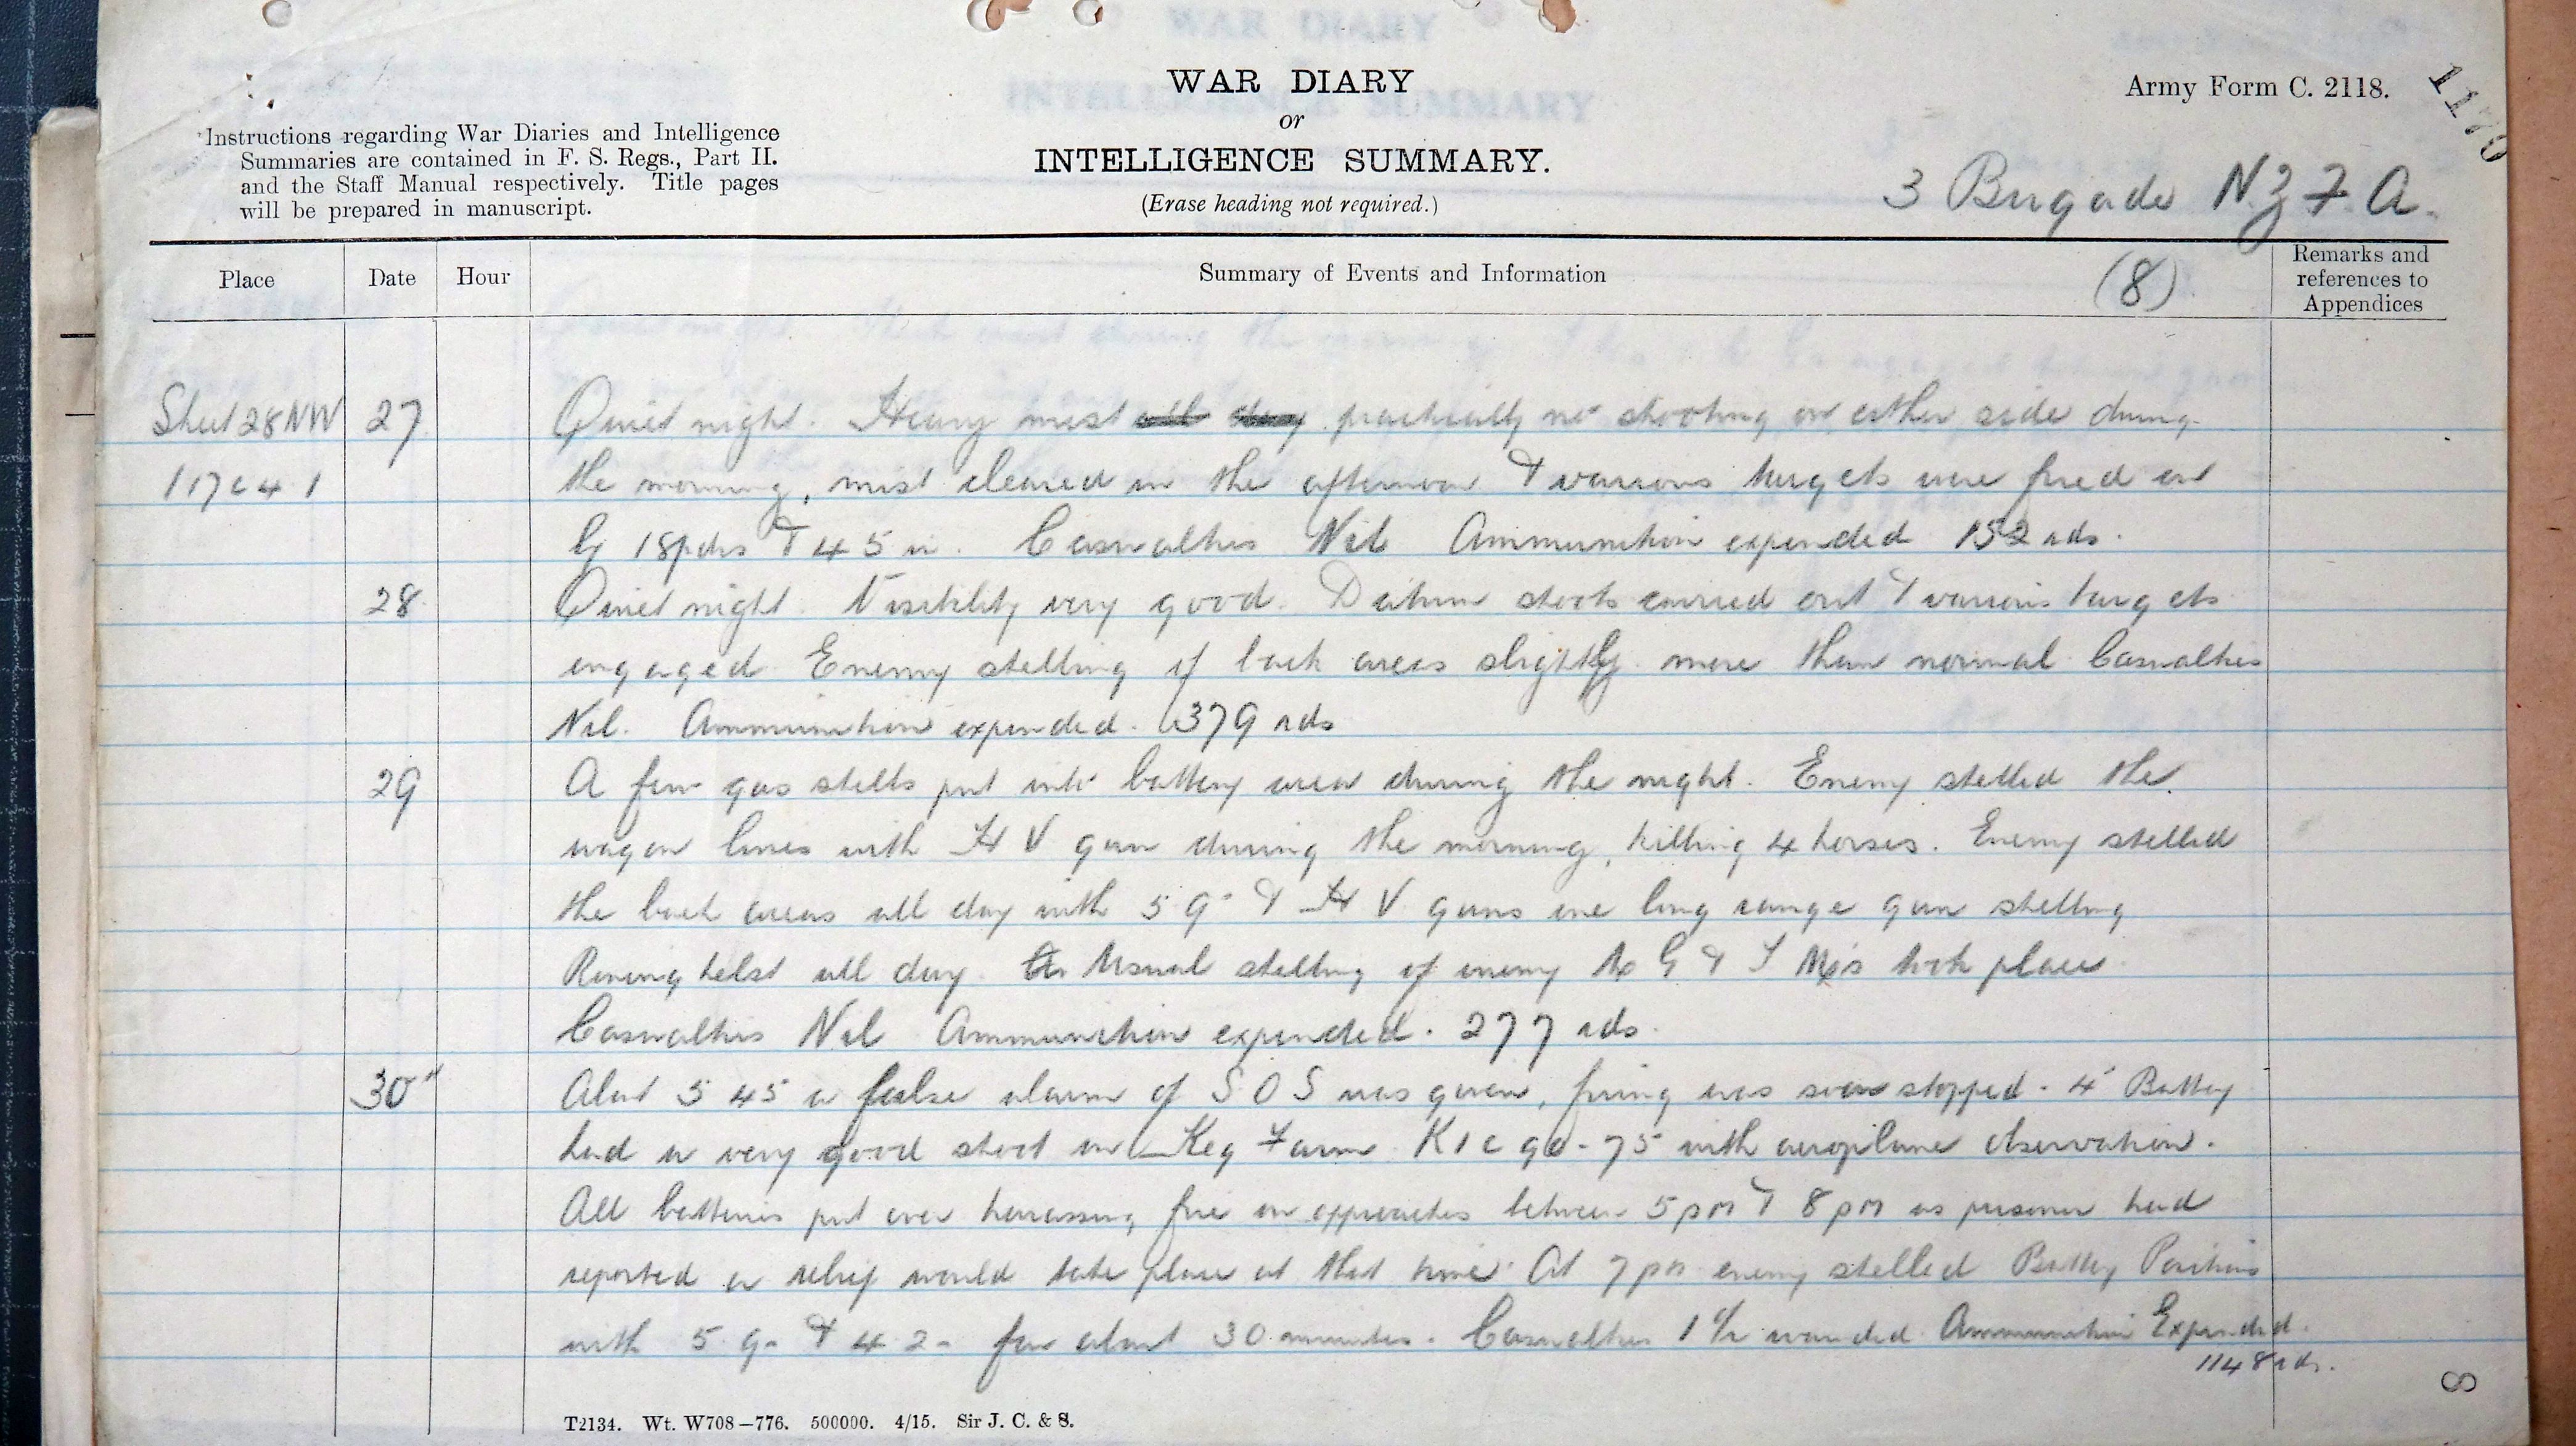 WAR DIARY
or
INTELLIGENCE SUMMARY.
(Erase heading not required.)
Army Form C. 2118.
1170
Instructions regarding War Diaries and Intelligence
Summaries are contained in F. S. Regs., Part II.
and the Staff Manual respectively. Title pages
will be prepared in manuscript.
3 Brigade NZFA.
Place Date Hour Summary of Events and Information (8) Remarks and references to Appendices
Sheet 28NW 27 Quiet night. Heavy mist all day practically no shooting on either side during
I 17 c 4 1 the morning, mist cleared in the afternoon & various targets were fired on
by 18pdrs & 4 5 in. Casualties Nil Ammunition expended 152 rds.
28 Quiet night. Visibility very good. Datum shoots carried out & various targets
engaged Enemy shelling of back areas slightly more than normal Casualties
Nil. Ammunition expended. 379 rds
29 A few gas shells put into battery area during the night. Enemy shelled the
wagon lines with H V gun during the morning, killing 4 horses. Enemy shelled
the back areas all day with 5 9" & H V guns one long range gun shelling
Reninghelst all day. Usual shelling of enemy M G & T M's took place
Casualties Nil Ammunition expended. 277 rds.
30" About 5 45 a false alarm of S O S was given, firing was soon stopped. 4" Battery
had a very good shoot on Keg Farm K 1 c 90-75 with aeroplane observation.
All batteries put over harassing fire on approaches between 5 pm & 8 pm as prisoner had
reported a relief would take place at that time. At 7 pm enemy shelled Battery Positions
with 5. 9- & 4 2- for about 30 minutes. Casualties 1 O/R wounded. Ammunition Expended.
1148 rds.
T2134. Wt. W708—776. 500000. 4/15. Sir J. C. & S.
8